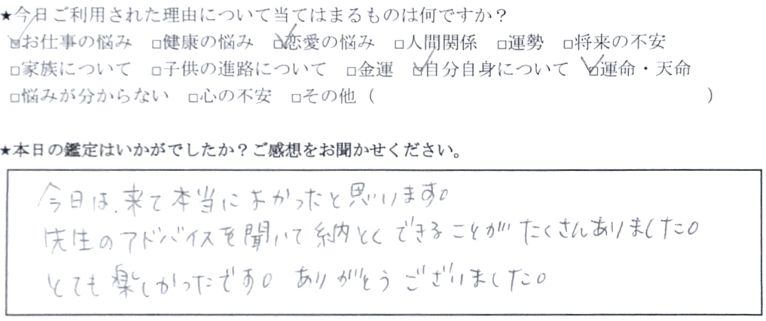 ★今日ご利用された理由について当てはまるものは何ですか？
☑お仕事の悩み　□健康の悩み　☑恋愛の悩み　□人間関係　□運勢　□将来の不安
□家族について　□子供の進路について　□金運　☑自分自身について　☑運命・天命
□悩みが分からない　□心の不安　□その他（　　　　　　　　　　　　　　　　　　　　）
★本日の鑑定はいかがでしたか？ご感想をお聞かせください。
今日は、来て本当によかったと思います。
先生のアドバイスを聞いて納とくできることがたくさんありました。
とても楽しかったです。ありがとうございました。